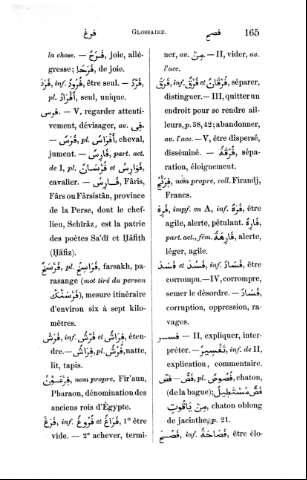 فرغ GLOSSAIRE. فصح 165
la chose. — فَرَحٌ, joie, allé-
gresse; فَرَحًا, de joie.
فَرَدَ, inf. فُرُودٌ, être seul. — فَرْدٌ,
pl. أَفْرَادٌ, seul, unique.
فرس — V, regarder attenti-
vement, dévisager, ac. فِى.
— فَرَسٌ, pl. أَفْرَاسٌ, cheval,
jument. — فَارِسٌ, part. act.
de I, pl. فُرْسَانٌ et فَوَارِسُ,
cavalier. — فَارِسُ, Fâris,
Fârs ou Fârsistân, province
de la Perse, dont le chef-
lieu, Schîrâz, est la patrie
des poètes Sa'dî et Ḥâfiṭh
(Ḥâfith)
فَرْسَخٌ, pl. فَرَاسِخُ, farsakh, pa-
rasange (mot tiré du persan
فَرْسَنْكْ), mesure itinéraire
d'environ six à sept kilo-
mètres.
فَرَشَ, inf. فَرْشٌ et فِرَاشٌ, éten-
dre. — فِرَاشٌ, pl. فُرُشٌ, natte,
lit, tapis.
فِرْعَوْنُ, nom propre, Fir'aun,
Pharaon, dénomination des
anciens rois d'Égypte.
فَرَغَ, inf. فُرُوغٌ et فَرَاغٌ, 1° être
vide. — 2° achever, termi-
ner, ac. مِنْ. — II, vider, av.
l'acc.
فَرَقَ, inf. فَرْقٌ et فُرْقَانٌ, séparer,
distinguer. — III, quitter un
endroit pour se rendre ail-
leurs, p. 38, 42; abandonner,
av. l'acc. — V, être dispersé,
disséminé. — فُرْقَةٌ, sépa-
ration, éloignement.
فَرَنْجٌ, nom propre, coll. Firandj,
Francs.
فَرُهَ, impf. en A, inf. فَرَهٌ, être
agile, alerte, pétulant. فَارِهٌ,
part. act., fém. فَارِهَةٌ, alerte,
léger, agile.
فَسَدَ et فَسُدَ, inf. فَسَادٌ, être
corrompu. — IV, corrompre,
semer le désordre. — فَسَادٌ,
corruption, oppression, ra-
vages.
فسر — II, expliquer, inter-
préter. — تَفْسِيرٌ, inf. de II,
explication, commentaire.
فَصٌّ — فَصٌّ, pl. فُصُوصٌ, chaton,
(de la bague); فَصٌّ مُسْتَطِيلٌ
مِنْ يَاقُوتٍ, chaton oblong
de jacinthe, p. 21.
فَصُحَ, inf. فَصَاحَةٌ, être élo-